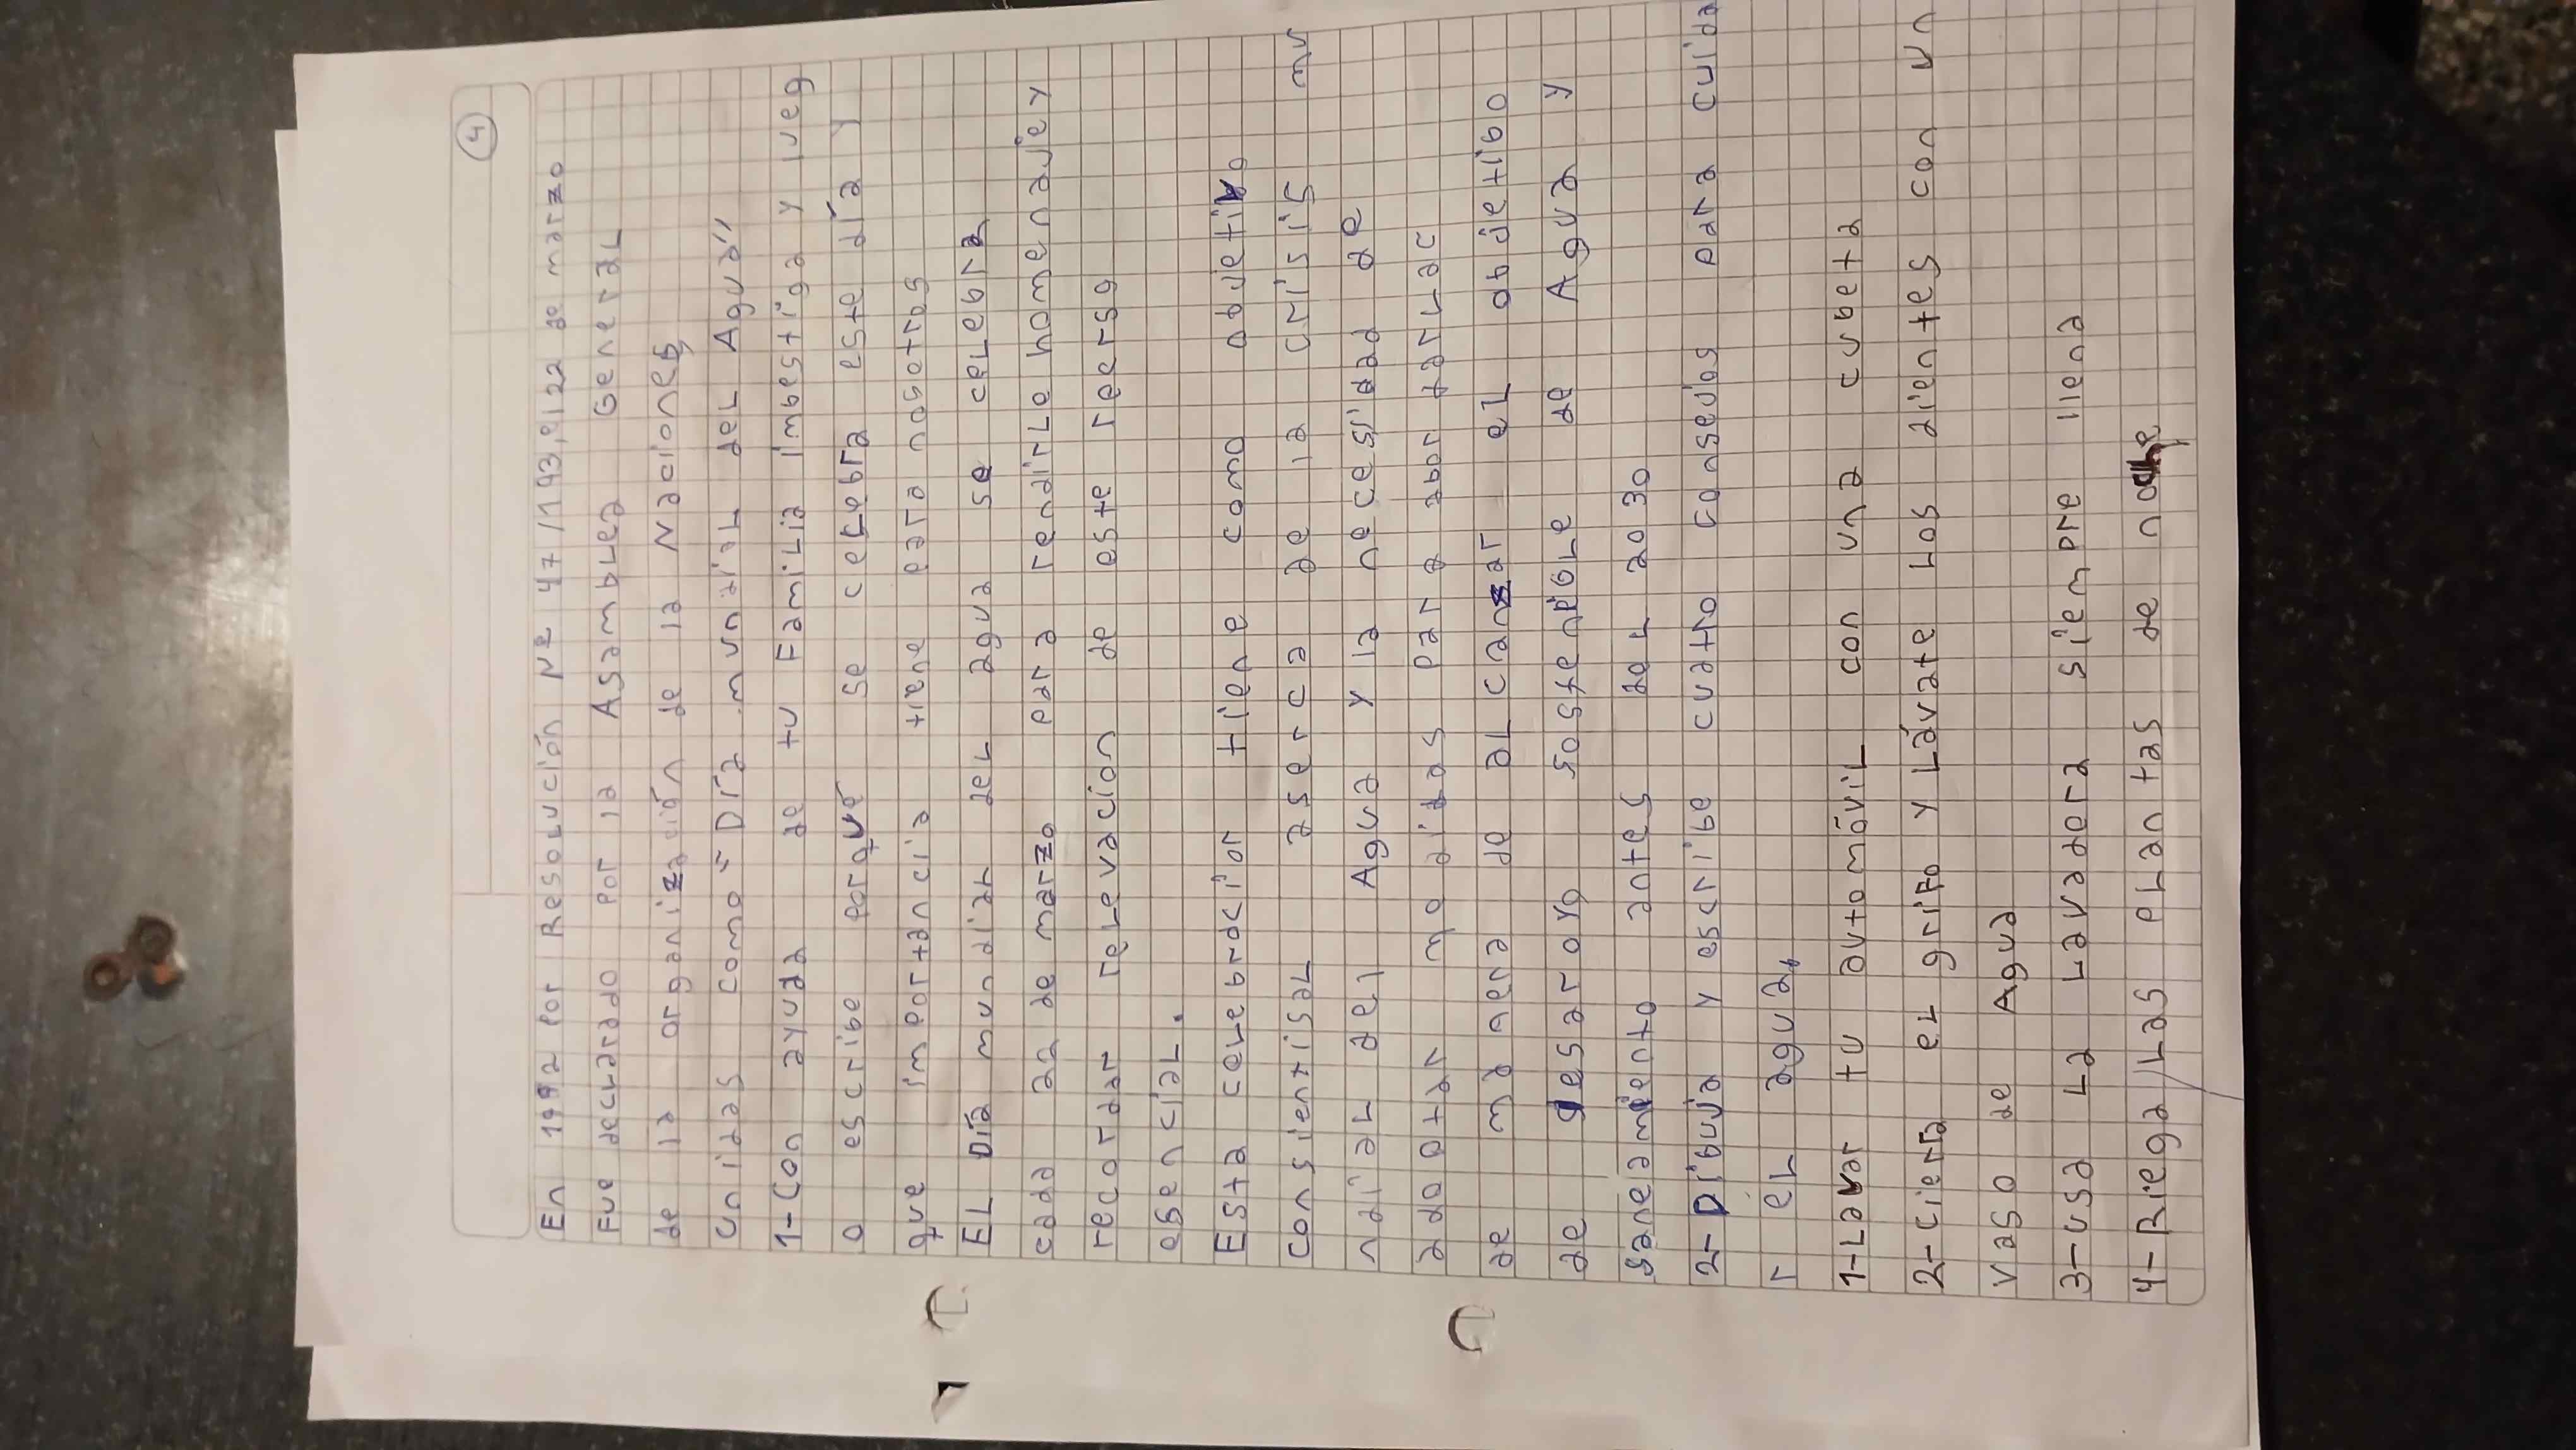 4
En 1992 por Resolución Nº 47/193, el 22 de marzo
Fue declarado por la Asamblea General
de la organización de la Naciones
unidas como "Día mundial del Agua"
1-Con ayuda de tu Familia imbestiga y lueg
o escribe porqué se celebra este día y
que importancia tiene para nosotros
EL Día mundial del agua se celebra
cada 22 de marzo para rendirle homenaje y
recordar relevacion de este recrso
esencial.
Esta celebracior tiene como objetivo
consientisal aserca de la crisis mu
ndial del Agua y la necesidad de
adoptar medidas para abor tarlac
de manera de alcanzar el objetibo
de desaroyo sostenible de Agua y
saneamiento antes del 2030
2-Dibuja y escribe cuatro consejos para cuida
r el agua.
1-Lavar tu automóvil con una cubeta
2-cierra el grifo y Lávate Los dientes con un
vaso de Agua
3-usa La Lavadora siempre llena
4-Riega Las plantas de noche